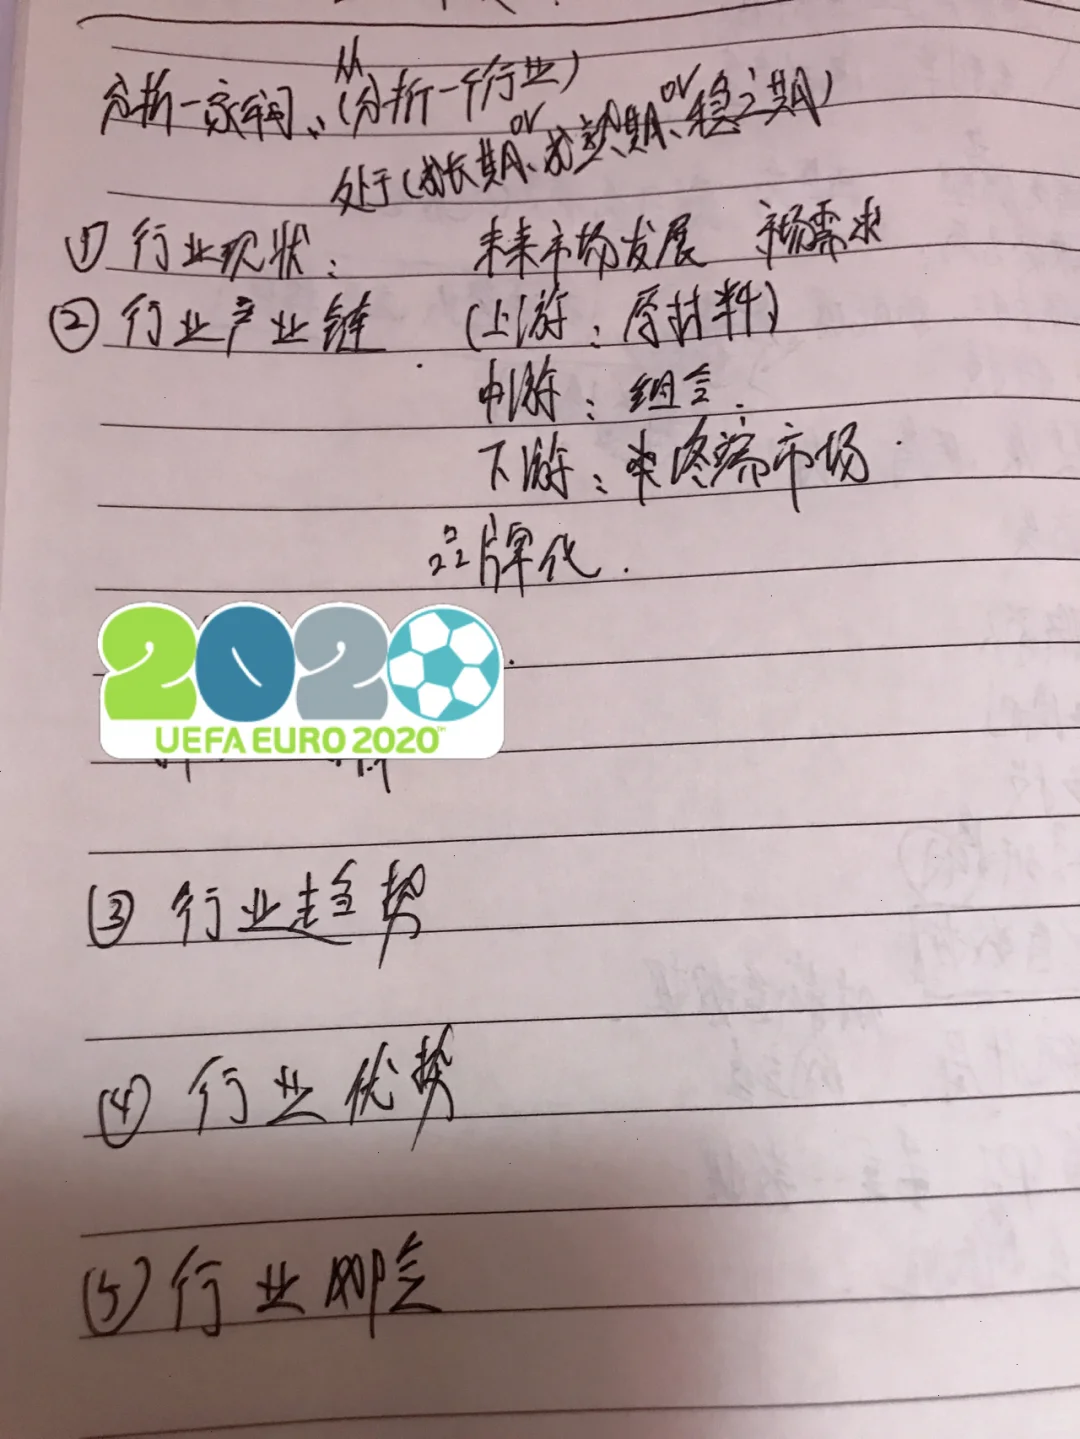 从
分析一家公司,(分析一个行业)
or or
处于(成长期、成熟期、稳定期)
① 行业现状: 未来市场发展 市场需求
② 行业产业链 (上游:原材料)
中游:组合.
下游:终端市场.
品牌化.
2020
UEFA EURO 2020™
③ 行业趋势
④ 行业优势
⑤ 行业